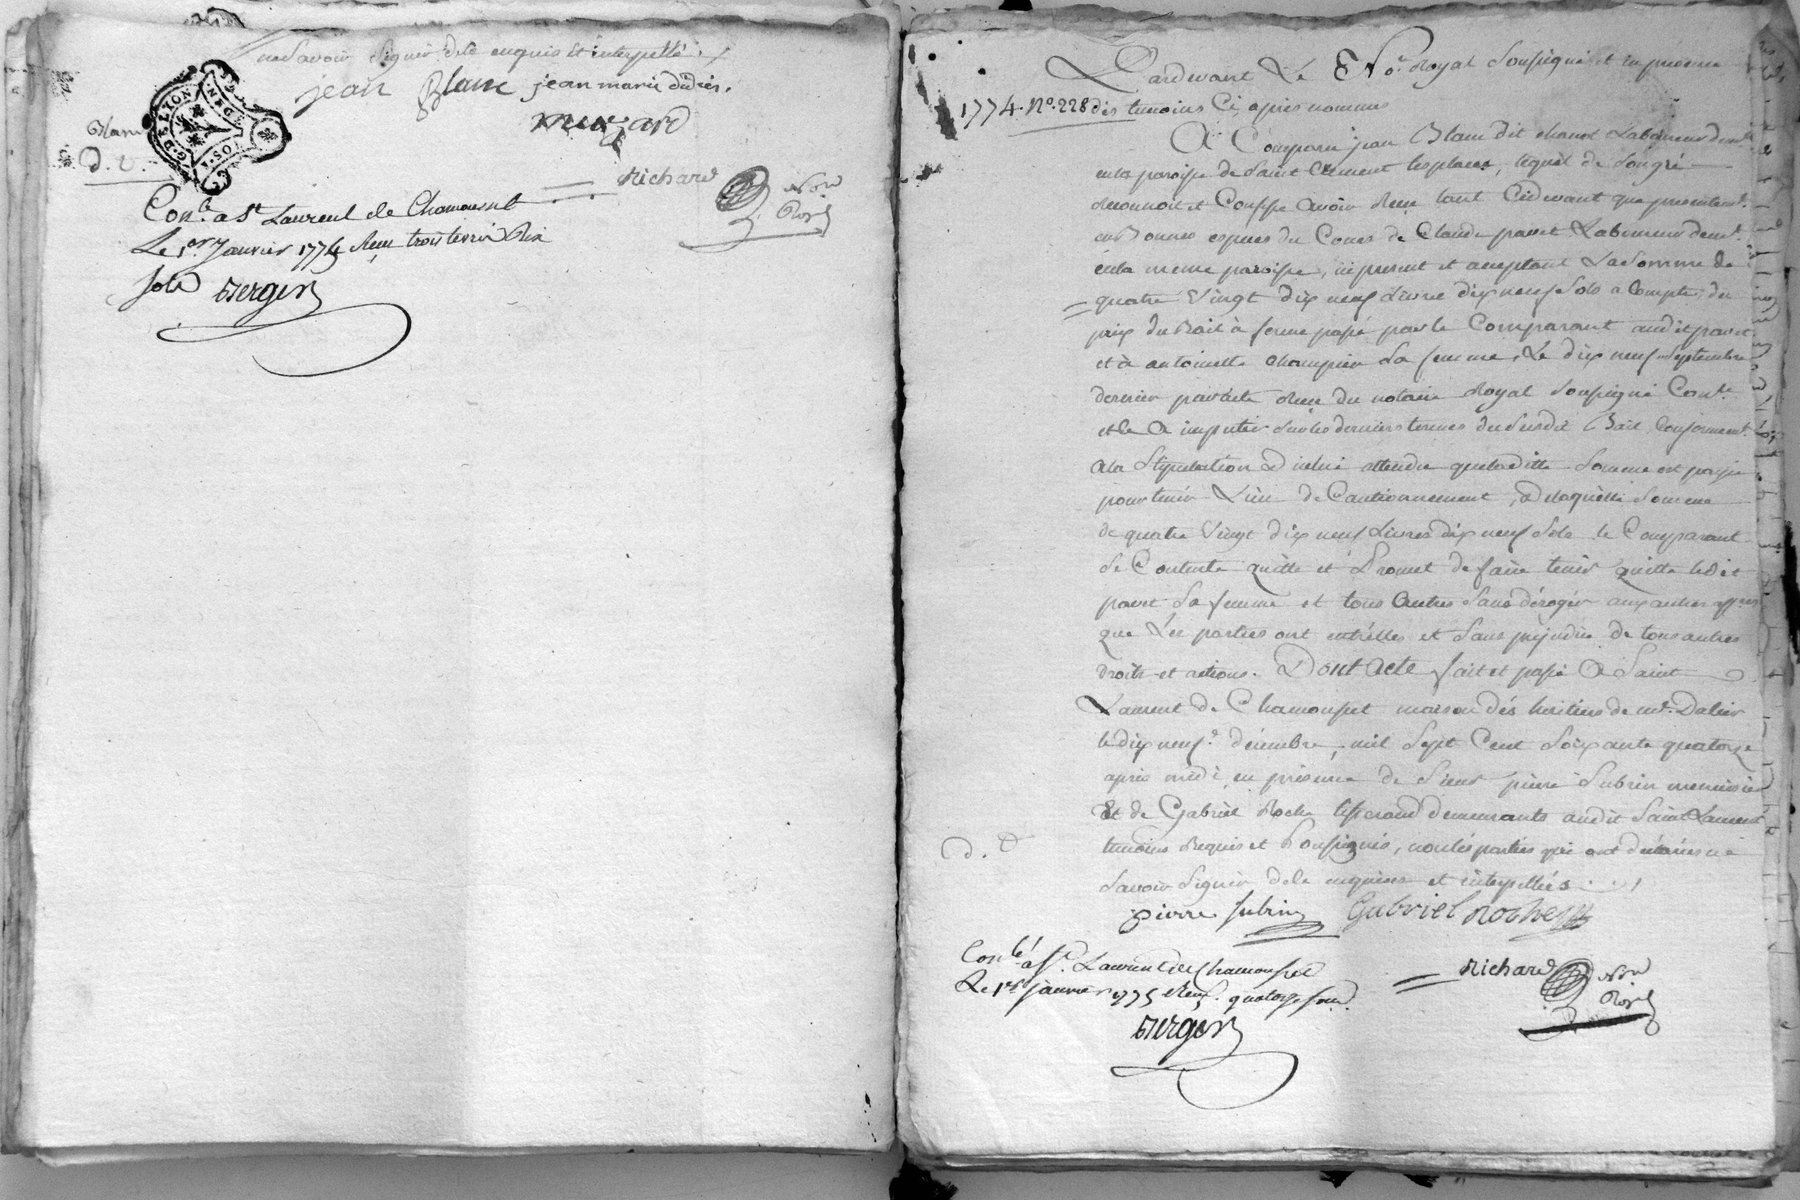 ne savoir signer de ce enquis et interpellé
jean Blanc jean marie didier.
Blanc
G. DE LYON
d. v.
Richard Nore Royal
Con.lé a St Laurent de Chamousset
Le 1.er Janvier 1774 Reçu trois livres dix
sols Berger
Pardevant Le No.re Royal Soussigné et en présence
1774. No. 228 des temoins Ci après nommés
A Comparu jean Blanc dit chanet Laboureur dem.t
en la paroisse de Saint Clement les places, lequel de Son gré
Reconnoit et Confesse avoir Reçu tant Cidevant que presentem.t
en Bonnes especes du Cours de Claude pavet Laboureur dem.t
en la meme paroisse, ici present et acceptant La Somme de
quatre Vingt dix neuf Livres dix neuf Sols a Compte du
prix du Bail à ferme passé par le Comparant audit pavet
et à antoinette champier Sa femme, Le dix neuf Septembre
dernier par acte Reçu du notaire Royal Soussigné Con.lé
et le a imputer Sur les derniers termes du Susdit Bail Conformem.t
a la Stipulation d'icelui attendu que laditte Somme est payée
pour tenir Lieu de Cautionnement, de laquelle Somme
de quatre Vingt dix neuf Livres dix neuf Sols le Comparant
Se Contente quitte et Promet de faire tenir quitte ledit
pavet Sa femme et tous Autres Sans déroger aux autres aff.res
que Les parties ont entr'elles et Sans prejudice de tous autres
droits et actions. Dont Acte fait et passé A Saint
Laurent de Chamousset maison des heritiers de m.r Dalier
le dix neuf décembre, mil Sept Cent Soixante quatorze
après midi, en présence de Sieur pierre Subrin menuisier
Et de Gabriel Roche tisserand demeurants audit Saint Laurent
d. v.
temoins Requis et Soussignés, non les parties qui ont déclarés ne
Savoir Signer de ce enquises et interpellées
pierre subrin Gabriel Roche
Con.lé a St. Laurent de Chamousset
Le 1.er janvier 1775 Reçu quatorze sous
Richard Nore Royal
Berger